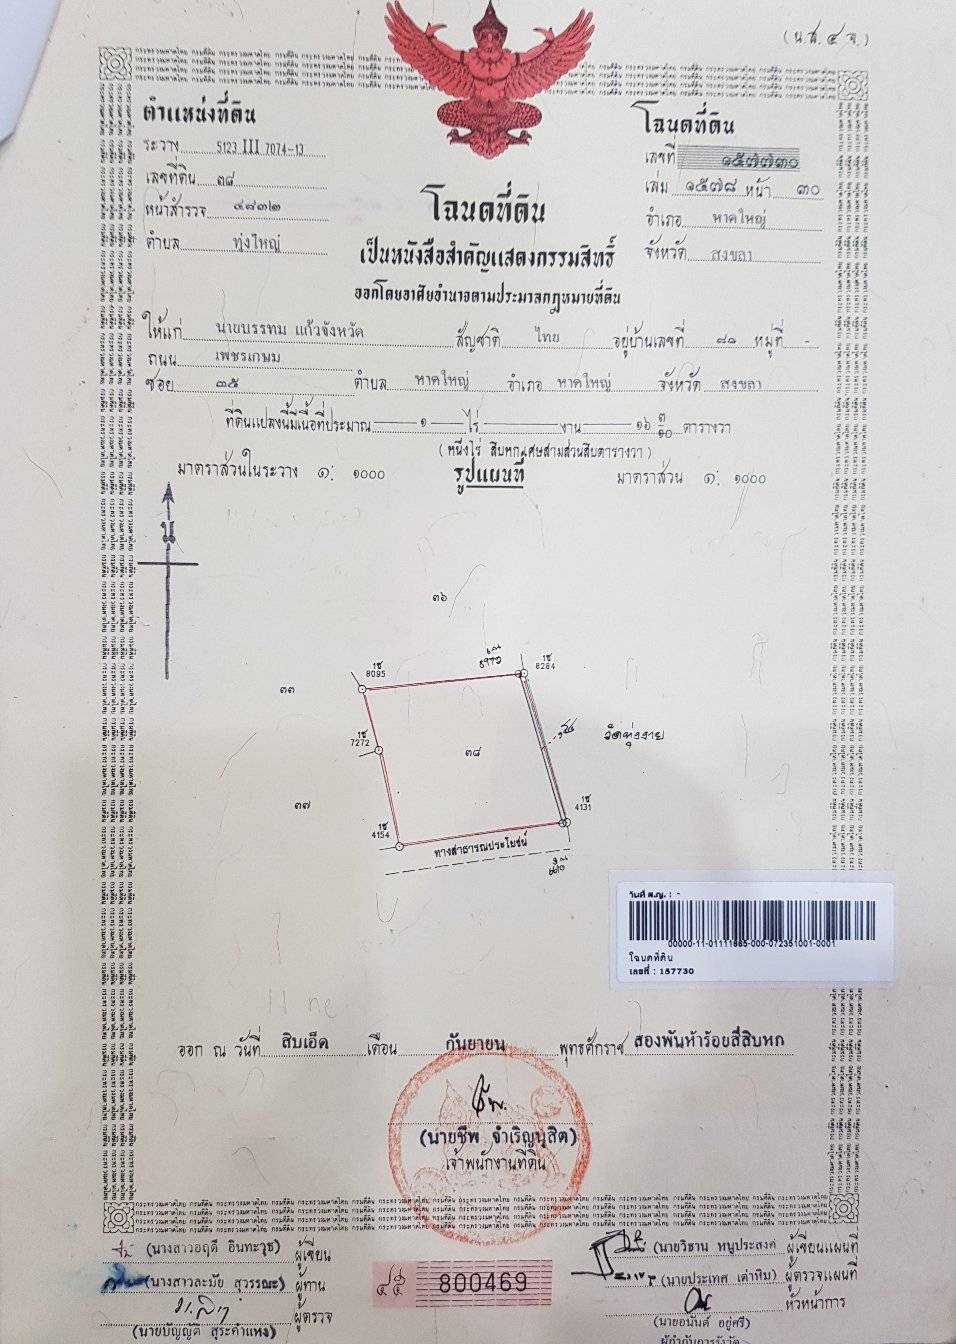 (น.ส.๔ จ.)
ตำแหน่งที่ดิน
ระวาง 5123 III 7074-13
เลขที่ดิน ๓๘
หน้าสำรวจ ๔๘๓๒
ตำบล ทุ่งใหญ่
โฉนดที่ดิน
เลขที่ ๑๕๗๗๓๐
เล่ม ๑๕๗๘ หน้า ๓๐
อำเภอ หาดใหญ่
จังหวัด สงขลา
โฉนดที่ดิน
เป็นหนังสือสำคัญแสดงกรรมสิทธิ์
ออกโดยอาศัยอำนาจตามประมวลกฎหมายที่ดิน
ให้แก่ นายบรรทม แก้วจังหวัด สัญชาติ ไทย อยู่บ้านเลขที่ ๘๑ หมู่ที่ -
ถนน เพชรเกษม
ซอย ๓๕ ตำบล หาดใหญ่ อำเภอ หาดใหญ่ จังหวัด สงขลา
ที่ดินแปลงนี้มีเนื้อที่ประมาณ ๑ ไร่ งาน ๑๖ ๓/๑๐ ตารางวา
(หนึ่งไร่ สิบหกเศษสามส่วนสิบตารางวา)
มาตราส่วนในระวาง ๑: ๑๐๐๐ รูปแผนที่ มาตราส่วน ๑: ๑๐๐๐
น
๓๖
1ช 8095
1ช 8284
๓๓
1ช 7272
๓๘
วัดทุ่งงาย
๓๗
1ช 4154
1ช 4131
ทางสาธารณประโยชน์
วันที่ พ.ญ. : -
00000-11-01111665-000-072351001-0001
โฉนดที่ดิน
เลขที่ : 157730
ออก ณ วันที่ สิบเอ็ด เดือน กันยายน พุทธศักราช สองพันห้าร้อยสี่สิบหก
(นายชีพ จำเริญนุสิต)
เจ้าพนักงานที่ดิน
(นางสาวอฤดี อินทะวุธ) ผู้เขียน
(นางสาวละมัย สุวรรณะ) ผู้ทาน
ผู้ตรวจ
(นายบัญญัติ สุระคำแหง)
๔๕ 800469
(นายวิธาน หนูประสงค์) ผู้เขียนแผนที่
(นายประเทศ เต่าทิม) ผู้ตรวจแผนที่
หัวหน้าการ
(นายอนันต์ อยู่ศรี)
ผู้กำกับการรังวัด